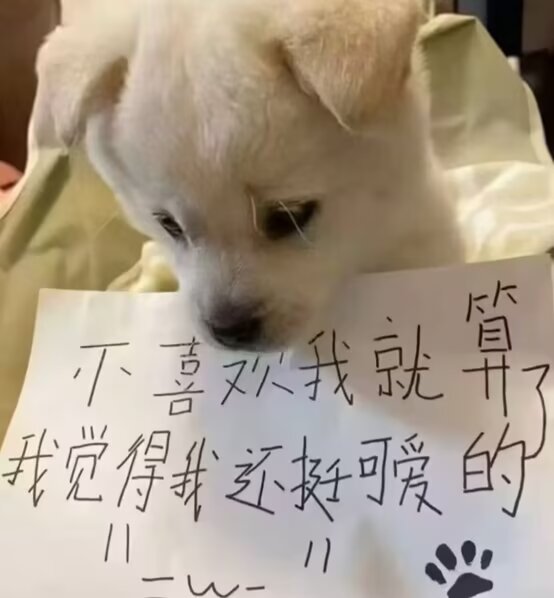 不喜欢我就算了
我觉得我还挺可爱的
=w=